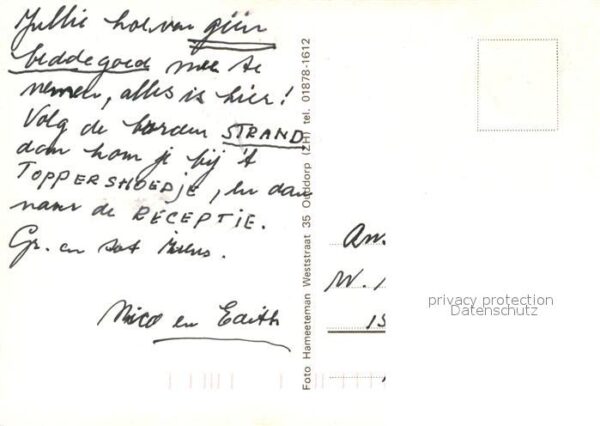 Jullie hoeven géén
beddegoed mee te
nemen, alles is hier!
Volg de borden STRAND,
dan kom je bij 't
TOPPERSHOEDJE, en dan
naar de RECEPTIE.
Gr. en tot ziens.
Nico en Edith
Foto Hameeteman Weststraat 35 Ouddorp (ZH) tel. 01878-1612
An.
W. 1
15
privacy protection
Datenschutz